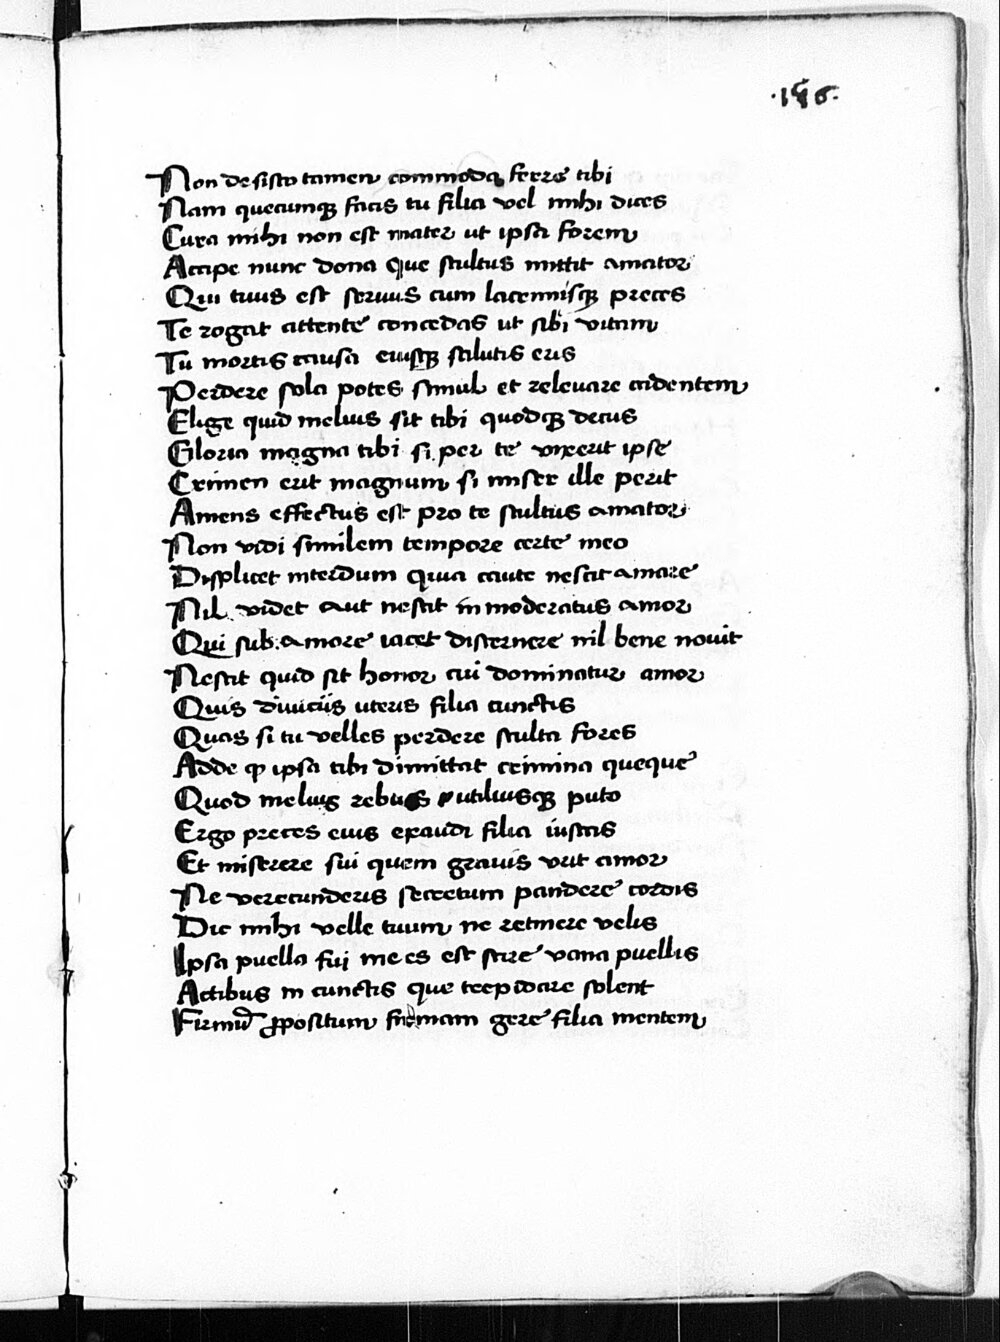 ·196·
Non desisto tamen commoda ferre tibi
Nam quecunqꝫ facis tu filia vel mihi dices
Cura mihi non est mater ut ipsa forem
Accipe nunc dona que stultus mittit amator
Qui tuus est seruus cum lacrimisqꝫ preces
Te rogat attente concedas ut sibi vitam
Tu mortis causa eiusqꝫ salutis eris
Perdere sola potes simul et releuare cadentem
Elige quid melius sit tibi quodqꝫ decus
Gloria magna tibi si per te vixerit ipse
Crimen erit magnum si miser ille perit
Amens effectus est pro te stultus amator
Non vidi similem tempore certe meo
Displicet interdum quia caute nescit amare
Nil videt aut nescit inmoderatus amor
Qui sub amore iacet discernere nil bene nouit
Nescit quid sit honor cui dominatur amor
Quis diuiciis uteris filia cunctis
Quas si tu velles perdere stulta fores
Adde ꝙ ipsa tibi dimittat crimina queque
Quod melius rebus utiliusqꝫ puto
Ergo preces eius exaudi filia iustas
Et miserere sui quem grauis urit amor
Ne verecunderis secretum pandere cordis
Dic mihi velle tuum ne retinere velis
Ipsa puella fui me es est scire vana puellis
Actibus in cunctis que trepidare solent
Firmū ꝓpositum firmam gere filia mentem